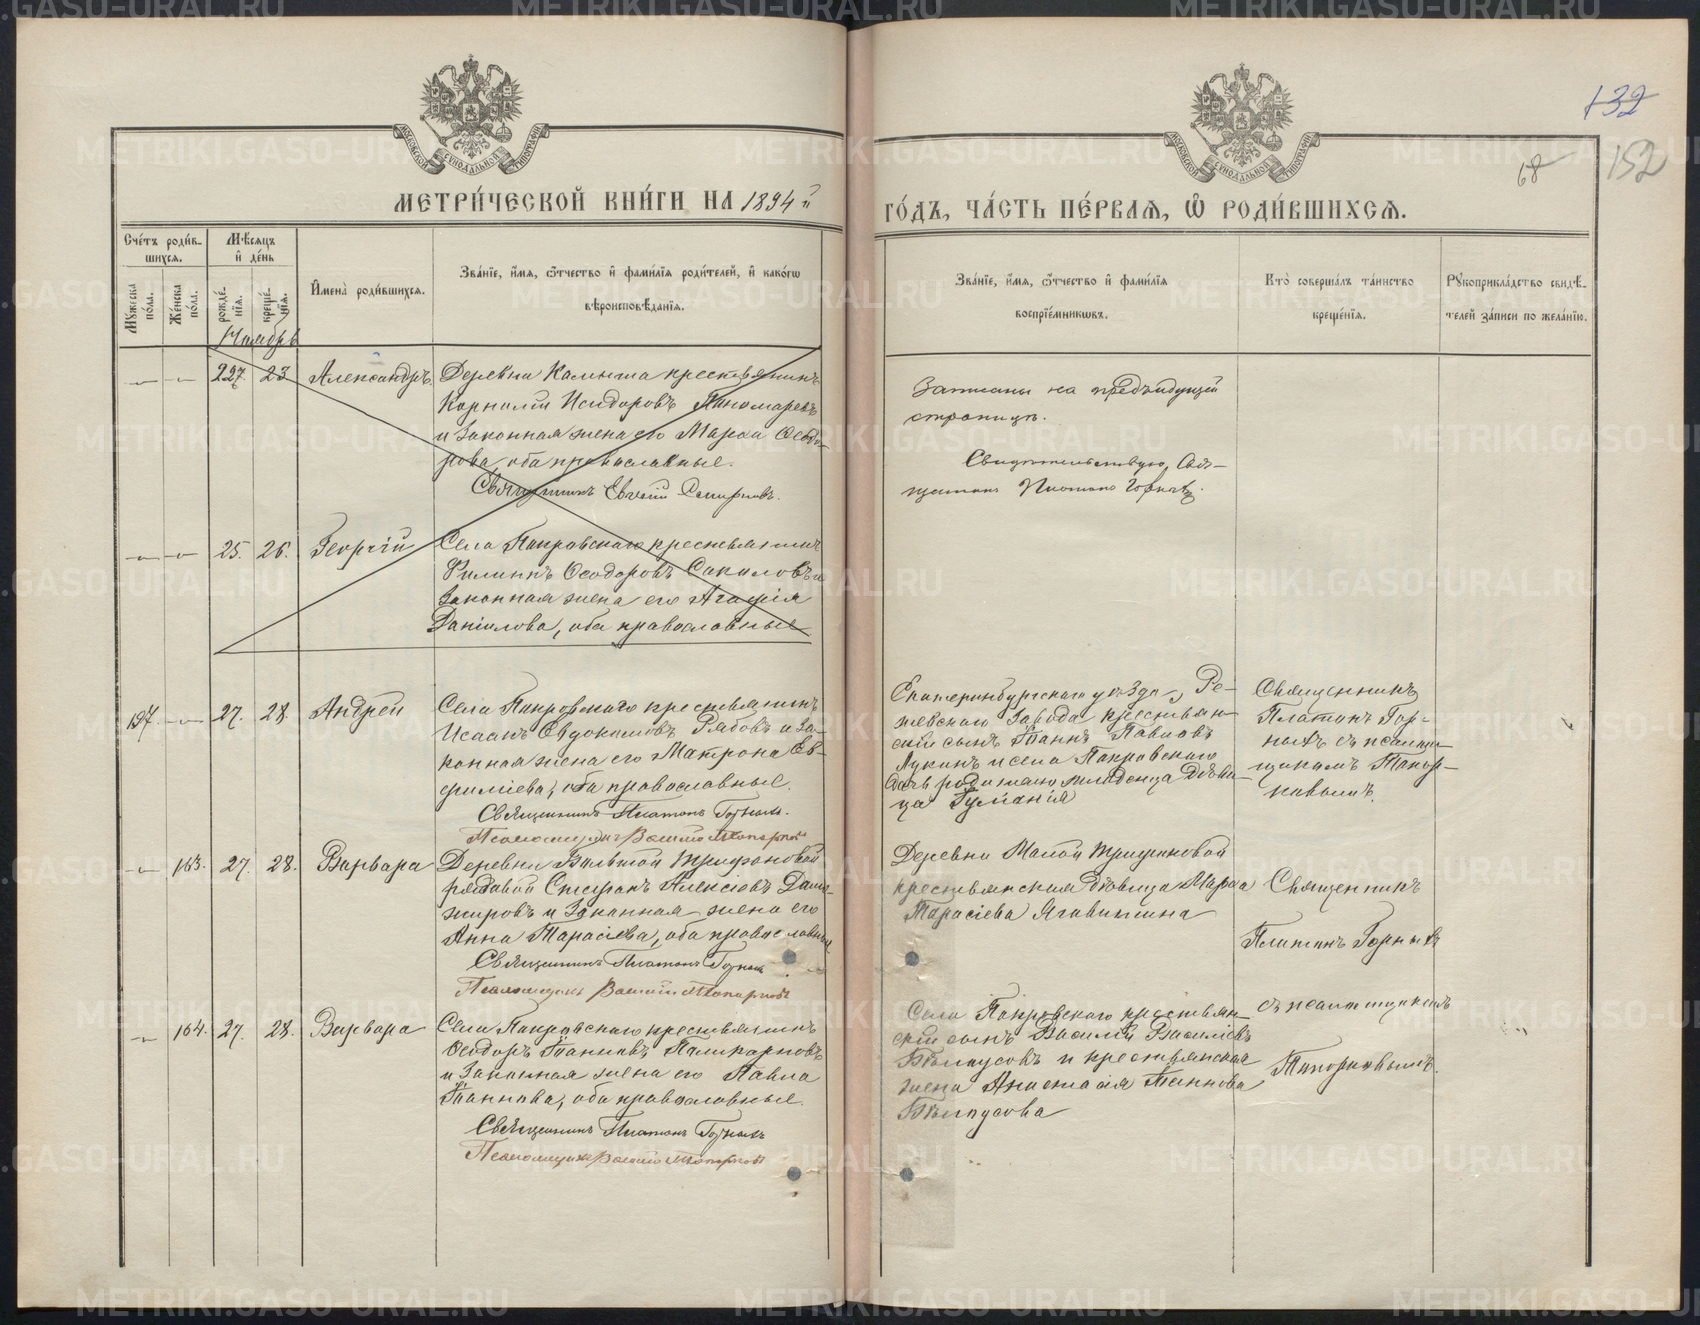 132
68
152
МОСКОВСКОЙ СѴНОДАЛЬНОЙ ТИПОГРАФІИ
МОСКОВСКОЙ СѴНОДАЛЬНОЙ ТИПОГРАФІИ
МЕТРИ́ЧЕСКОЙ КНИ́ГИ НА 1894й
ГО́ДЪ, ЧА́СТЬ ПЕ́РВАЯ, Ѡ҆ РОДИ́ВШИХСЯ.
Сче́тъ роди́в-
шихся.
Мѣ́сяцъ
и҆ де́нь
Мꙋ́жеска
по́ла.
Же́нска
по́ла.
рожде́-
нїя.
креще́-
нїя.
И҆мена̀ роди́вшихся.
Зва́нїе, и҆́мя, ѻ҆́тчество и҆ фами́лїя роди́телей, и҆ како́гѡ
вѣроисповѣ́данїя.
Зва́нїе, и҆́мя, ѻ҆́тчество и҆ фами́лїя
воспрїе́мникѡвъ.
Кто̀ соверша́лъ та́инство
креще́нїя.
Рꙋкоприкла́дство свидѣ́-
телей за́писи по жела́нїю.
Ноябрь
227. 23 Александръ
Деревни Калыша крестьянинъ
Корнилій Исидоровъ Пономаревъ
и законная жена его Марѳа Ѳеодо-
рова, оба православные.
Священникъ Евгеній Смирновъ.
Записаны на предъидущей
страницѣ.
Свидѣтельствую, Свя-
щенникъ Платонъ Горныхъ.
25. 26. Георгій
Села Покровскаго крестьянинъ
Филиппъ Ѳеодоровъ Соколовъ и
законная жена его Агафія
Даніилова, оба православные
197. 27. 28. Андрей
Села Покровскаго крестьянинъ
Исаакъ Евдокимовъ Рябовъ и за-
конная жена его Матрона Ев-
фиміева, оба православные.
Священникъ Платонъ Горныхъ.
Псаломщикъ Василій Топорковъ
Екатеринбургскаго уѣзда, Ре-
жевскаго завода крестьян-
скій сынъ Іоаннъ Павловъ
Лукинъ и села Покровскаго
дочь родителей младенца дѣви-
ца Іуліанія
Священникъ
Платонъ Гор-
ныхъ съ псалом-
щикомъ Топор-
ковымъ.
163. 27. 28. Варвара
Деревни Большой Трифоновой
рядовой Стефанъ Алексіевъ
и законная жена его
Анна Тарасіева, оба православные
Священникъ Платонъ Горныхъ
Псаломщикъ Василій Топорковъ
Деревни Малой Трифоновой
крестьянская дѣвица Марѳа
Тарасіева
Священникъ
Платонъ Горныхъ
164. 27. 28. Варвара
Села Покровскаго крестьянинъ
Ѳеодоръ Іоанновъ Поликарповъ
и законная жена его Павла
Іоаннова, оба православные.
Священникъ Платонъ Горныхъ
Псаломщикъ Василій Топорковъ
Села Покровскаго крестьян-
скій сынъ Василій Василіевъ
Бѣлоусовъ и крестьянская
жена Анастасія Іоаннова
Бѣлоусова
съ псаломщикомъ
Топорковымъ.
METRIKI.GASO-URAL.RU